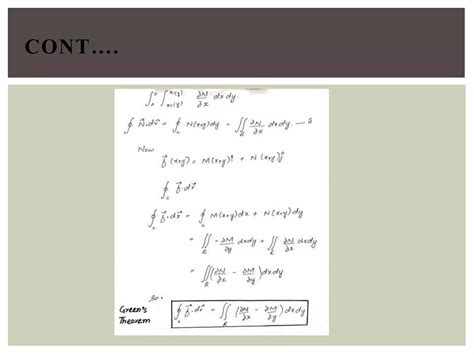 CONT....
∫∫_{x₁(y)}^{x₂(y)} ∂N/∂x dxdy.
∮ N⃗.dr⃗ = ∮_c N(x,y)dy = ∬_R ∂N/∂x dxdy —
Now
f⃗(x,y) = M(x,y)î + N(x,y)ĵ
∮_c f⃗.dr⃗
∮_c f⃗.dr⃗ = ∮_c M(x,y)dx + N(x,y)dy
= ∬_R -∂M/∂y dxdy + ∬_R ∂N/∂x dxdy
= ∬_R (∂N/∂x - ∂M/∂y) dxdy
So
Green's Theorem
∮_c f⃗.dr⃗ = ∬_R (∂N/∂x - ∂M/∂y) dxdy